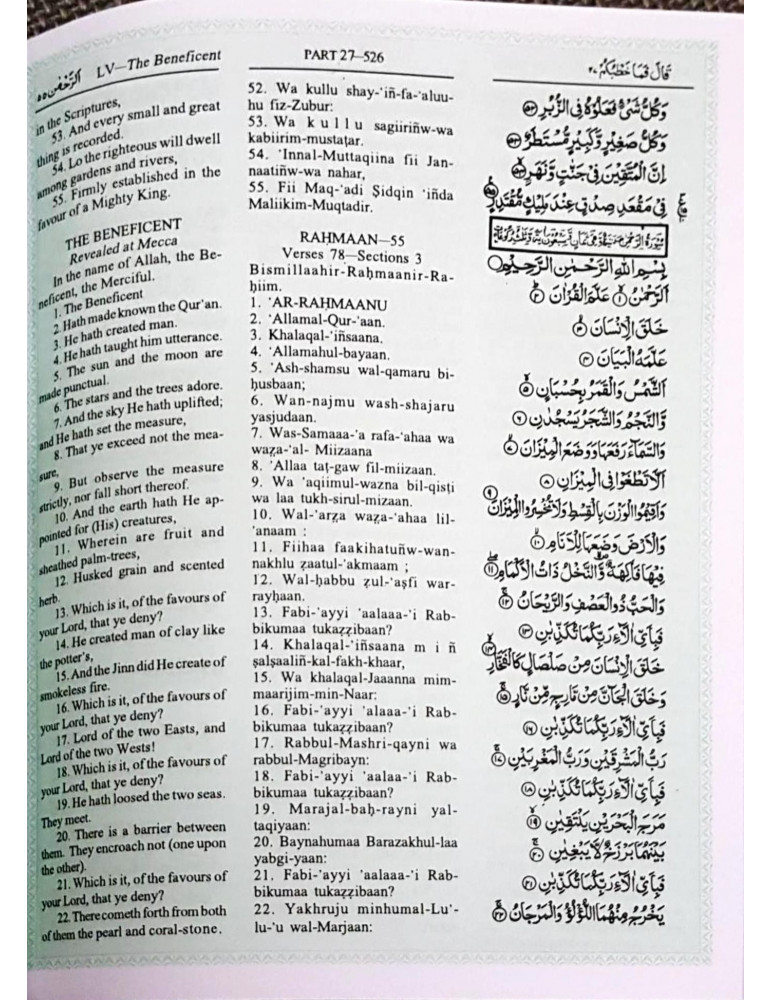 اَلرَّحْمٰن ٥٥ LV—The Beneficent
PART 27–526
قَالَ فَمَا خَطْبُكُمْ ٢٧
in the Scriptures,
53. And every small and great
thing is recorded.
54. Lo the righteous will dwell
among gardens and rivers,
55. Firmly established in the
favour of a Mighty King.
THE BENEFICENT
Revealed at Mecca
In the name of Allah, the Be-
neficent, the Merciful.
1. The Beneficent
2. Hath made known the Qur'an.
3. He hath created man.
4. He hath taught him utterance.
5. The sun and the moon are
made punctual.
6. The stars and the trees adore.
7. And the sky He hath uplifted;
and He hath set the measure,
8. That ye exceed not the mea-
sure,
9. But observe the measure
strictly, nor fall short thereof.
10. And the earth hath He ap-
pointed for (His) creatures,
11. Wherein are fruit and
sheathed palm-trees,
12. Husked grain and scented
herb.
13. Which is it, of the favours of
your Lord, that ye deny?
14. He created man of clay like
the potter's,
15. And the Jinn did He create of
smokeless fire.
16. Which is it, of the favours of
your Lord, that ye deny?
17. Lord of the two Easts, and
Lord of the two Wests!
18. Which is it, of the favours of
your Lord, that ye deny?
19. He hath loosed the two seas.
They meet.
20. There is a barrier between
them. They encroach not (one upon
the other).
21. Which is it, of the favours of
your Lord, that ye deny?
22. There cometh forth from both
of them the pearl and coral-stone.
52. Wa kullu shay-'iñ-fa-'aluu-
hu fiz-Zubur:
53. Wa kullu sagiiriñw-wa
kabiirim-mustaṭar.
54. 'Innal-Muttaqiina fii Jan-
naatiñw-wa nahar,
55. Fii Maq-'adi Ṣidqin 'iñda
Maliikim-Muqtadir.
RAḤMAAN—55
Verses 78—Sections 3
Bismillaahir-Raḥmaanir-Ra-
ḥiim.
1. 'AR-RAḤMAANU
2. 'Allamal-Qur-'aan.
3. Khalaqal-'iñsaana.
4. 'Allamahul-bayaan.
5. 'Ash-shamsu wal-qamaru bi-
ḥusbaan;
6. Wan-najmu wash-shajaru
yasjudaan.
7. Was-Samaaa-'a rafa-'ahaa wa
waẓa-'al- Miizaana
8. 'Allaa taṭ-gaw fil-miizaan.
9. Wa 'aqiimul-wazna bil-qisṭi
wa laa tukh-sirul-mizaan.
10. Wal-'arẓa waẓa-'ahaa lil-
'anaam :
11. Fiihaa faakihatuñw-wan-
nakhlu ẓaatul-'akmaam ;
12. Wal-ḥabbu ẓul-'aṣfi war-
rayḥaan.
13. Fabi-'ayyi 'aalaaa-'i Rab-
bikumaa tukaẓẓibaan?
14. Khalaqal-'iñsaana miñ
ṣalṣaaliñ-kal-fakh-khaar,
15. Wa khalaqal-Jaaanna mim-
maarijim-min-Naar:
16. Fabi-'ayyi 'alaaa-'i Rab-
bikumaa tukaẓẓibaan?
17. Rabbul-Mashri-qayni wa
rabbul-Magribayn:
18. Fabi-'ayyi 'aalaaa-'i Rab-
bikumaa tukaẓẓibaan?
19. Marajal-baḥ-rayni yal-
taqiyaan:
20. Baynahumaa Barazakhul-laa
yabgi-yaan:
21. Fabi-'ayyi 'aalaaa-'i Rab-
bikumaa tukaẓẓibaan?
22. Yakhruju minhumal-Lu'-
lu-'u wal-Marjaan:
وَكُلُّ شَيْءٍ فَعَلُوْهُ فِي الزُّبُرِ ۝٥٢
وَكُلُّ صَغِيْرٍ وَّكَبِيْرٍ مُّسْتَطَرٌ ۝٥٣
اِنَّ الْمُتَّقِيْنَ فِيْ جَنّٰتٍ وَّنَهَرٍ ۝٥٤
فِيْ مَقْعَدِ صِدْقٍ عِنْدَ مَلِيْكٍ مُّقْتَدِرٍ ۝٥٥
بِسْمِ اللّٰهِ الرَّحْمٰنِ الرَّحِيْمِ
اَلرَّحْمٰنُ ۝١ عَلَّمَ الْقُرْاٰنَ ۝٢
خَلَقَ الْاِنْسَانَ ۝٣
عَلَّمَهُ الْبَيَانَ ۝٤
اَلشَّمْسُ وَالْقَمَرُ بِحُسْبَانٍ ۝٥
وَّالنَّجْمُ وَالشَّجَرُ يَسْجُدٰنِ ۝٦
وَالسَّمَآءَ رَفَعَهَا وَوَضَعَ الْمِيْزَانَ ۝٧
اَلَّا تَطْغَوْا فِي الْمِيْزَانِ ۝٨
وَاَقِيْمُوا الْوَزْنَ بِالْقِسْطِ وَلَا تُخْسِرُوا الْمِيْزَانَ ۝٩
وَالْاَرْضَ وَضَعَهَا لِلْاَنَامِ ۝١٠
فِيْهَا فَاكِهَةٌ وَّالنَّخْلُ ذَاتُ الْاَكْمَامِ ۝١١
وَالْحَبُّ ذُو الْعَصْفِ وَالرَّيْحَانُ ۝١٢
فَبِاَيِّ اٰلَآءِ رَبِّكُمَا تُكَذِّبٰنِ ۝١٣
خَلَقَ الْاِنْسَانَ مِنْ صَلْصَالٍ كَالْفَخَّارِ ۝١٤
وَخَلَقَ الْجَآنَّ مِنْ مَّارِجٍ مِّنْ نَّارٍ ۝١٥
فَبِاَيِّ اٰلَآءِ رَبِّكُمَا تُكَذِّبٰنِ ۝١٦
رَبُّ الْمَشْرِقَيْنِ وَرَبُّ الْمَغْرِبَيْنِ ۝١٧
فَبِاَيِّ اٰلَآءِ رَبِّكُمَا تُكَذِّبٰنِ ۝١٨
مَرَجَ الْبَحْرَيْنِ يَلْتَقِيٰنِ ۝١٩
بَيْنَهُمَا بَرْزَخٌ لَّا يَبْغِيٰنِ ۝٢٠
فَبِاَيِّ اٰلَآءِ رَبِّكُمَا تُكَذِّبٰنِ ۝٢١
يَخْرُجُ مِنْهُمَا اللُّؤْلُؤُ وَالْمَرْجَانُ ۝٢٢